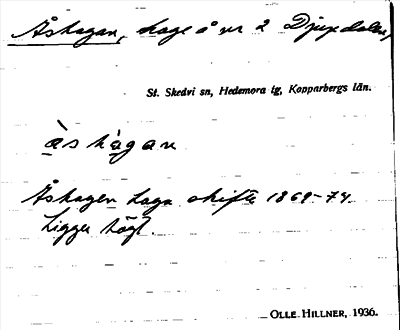 Åshagan, hage å nr 2 Djupdalen,
St. Skedvi sn, Hedemora tg, Kopparbergs län.
ȧs hàgan
Åshagen Laga skifte 1869-74.
Ligger högt.
OLLE HILLNER, 1936.